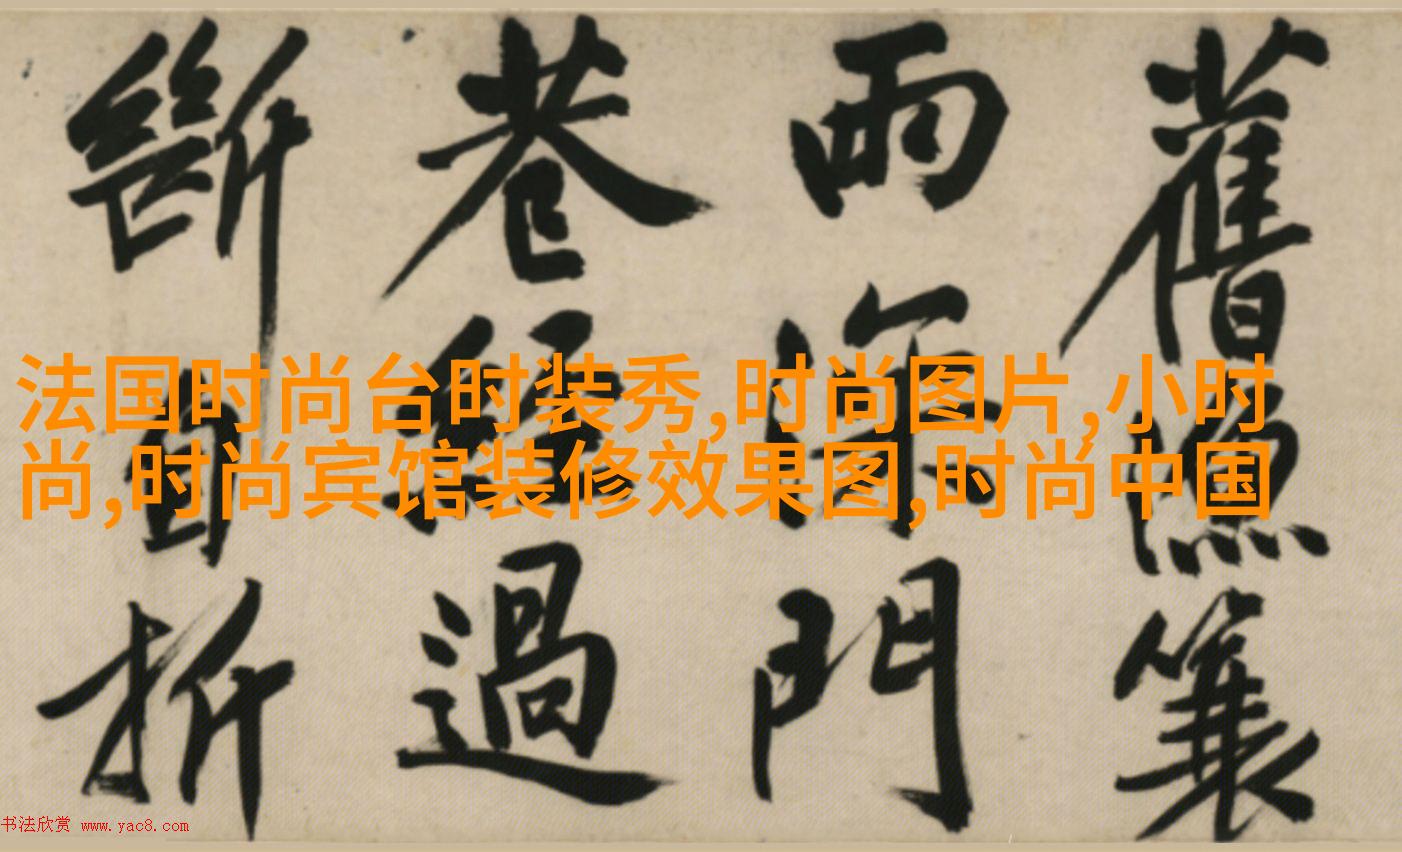 舊簑
雨深門
巷經過
斷自折
法国时尚台时装秀,时尚图片,小时
尚,时尚宾馆装修效果图,时尚中国
书法欣赏 www.yac8.com